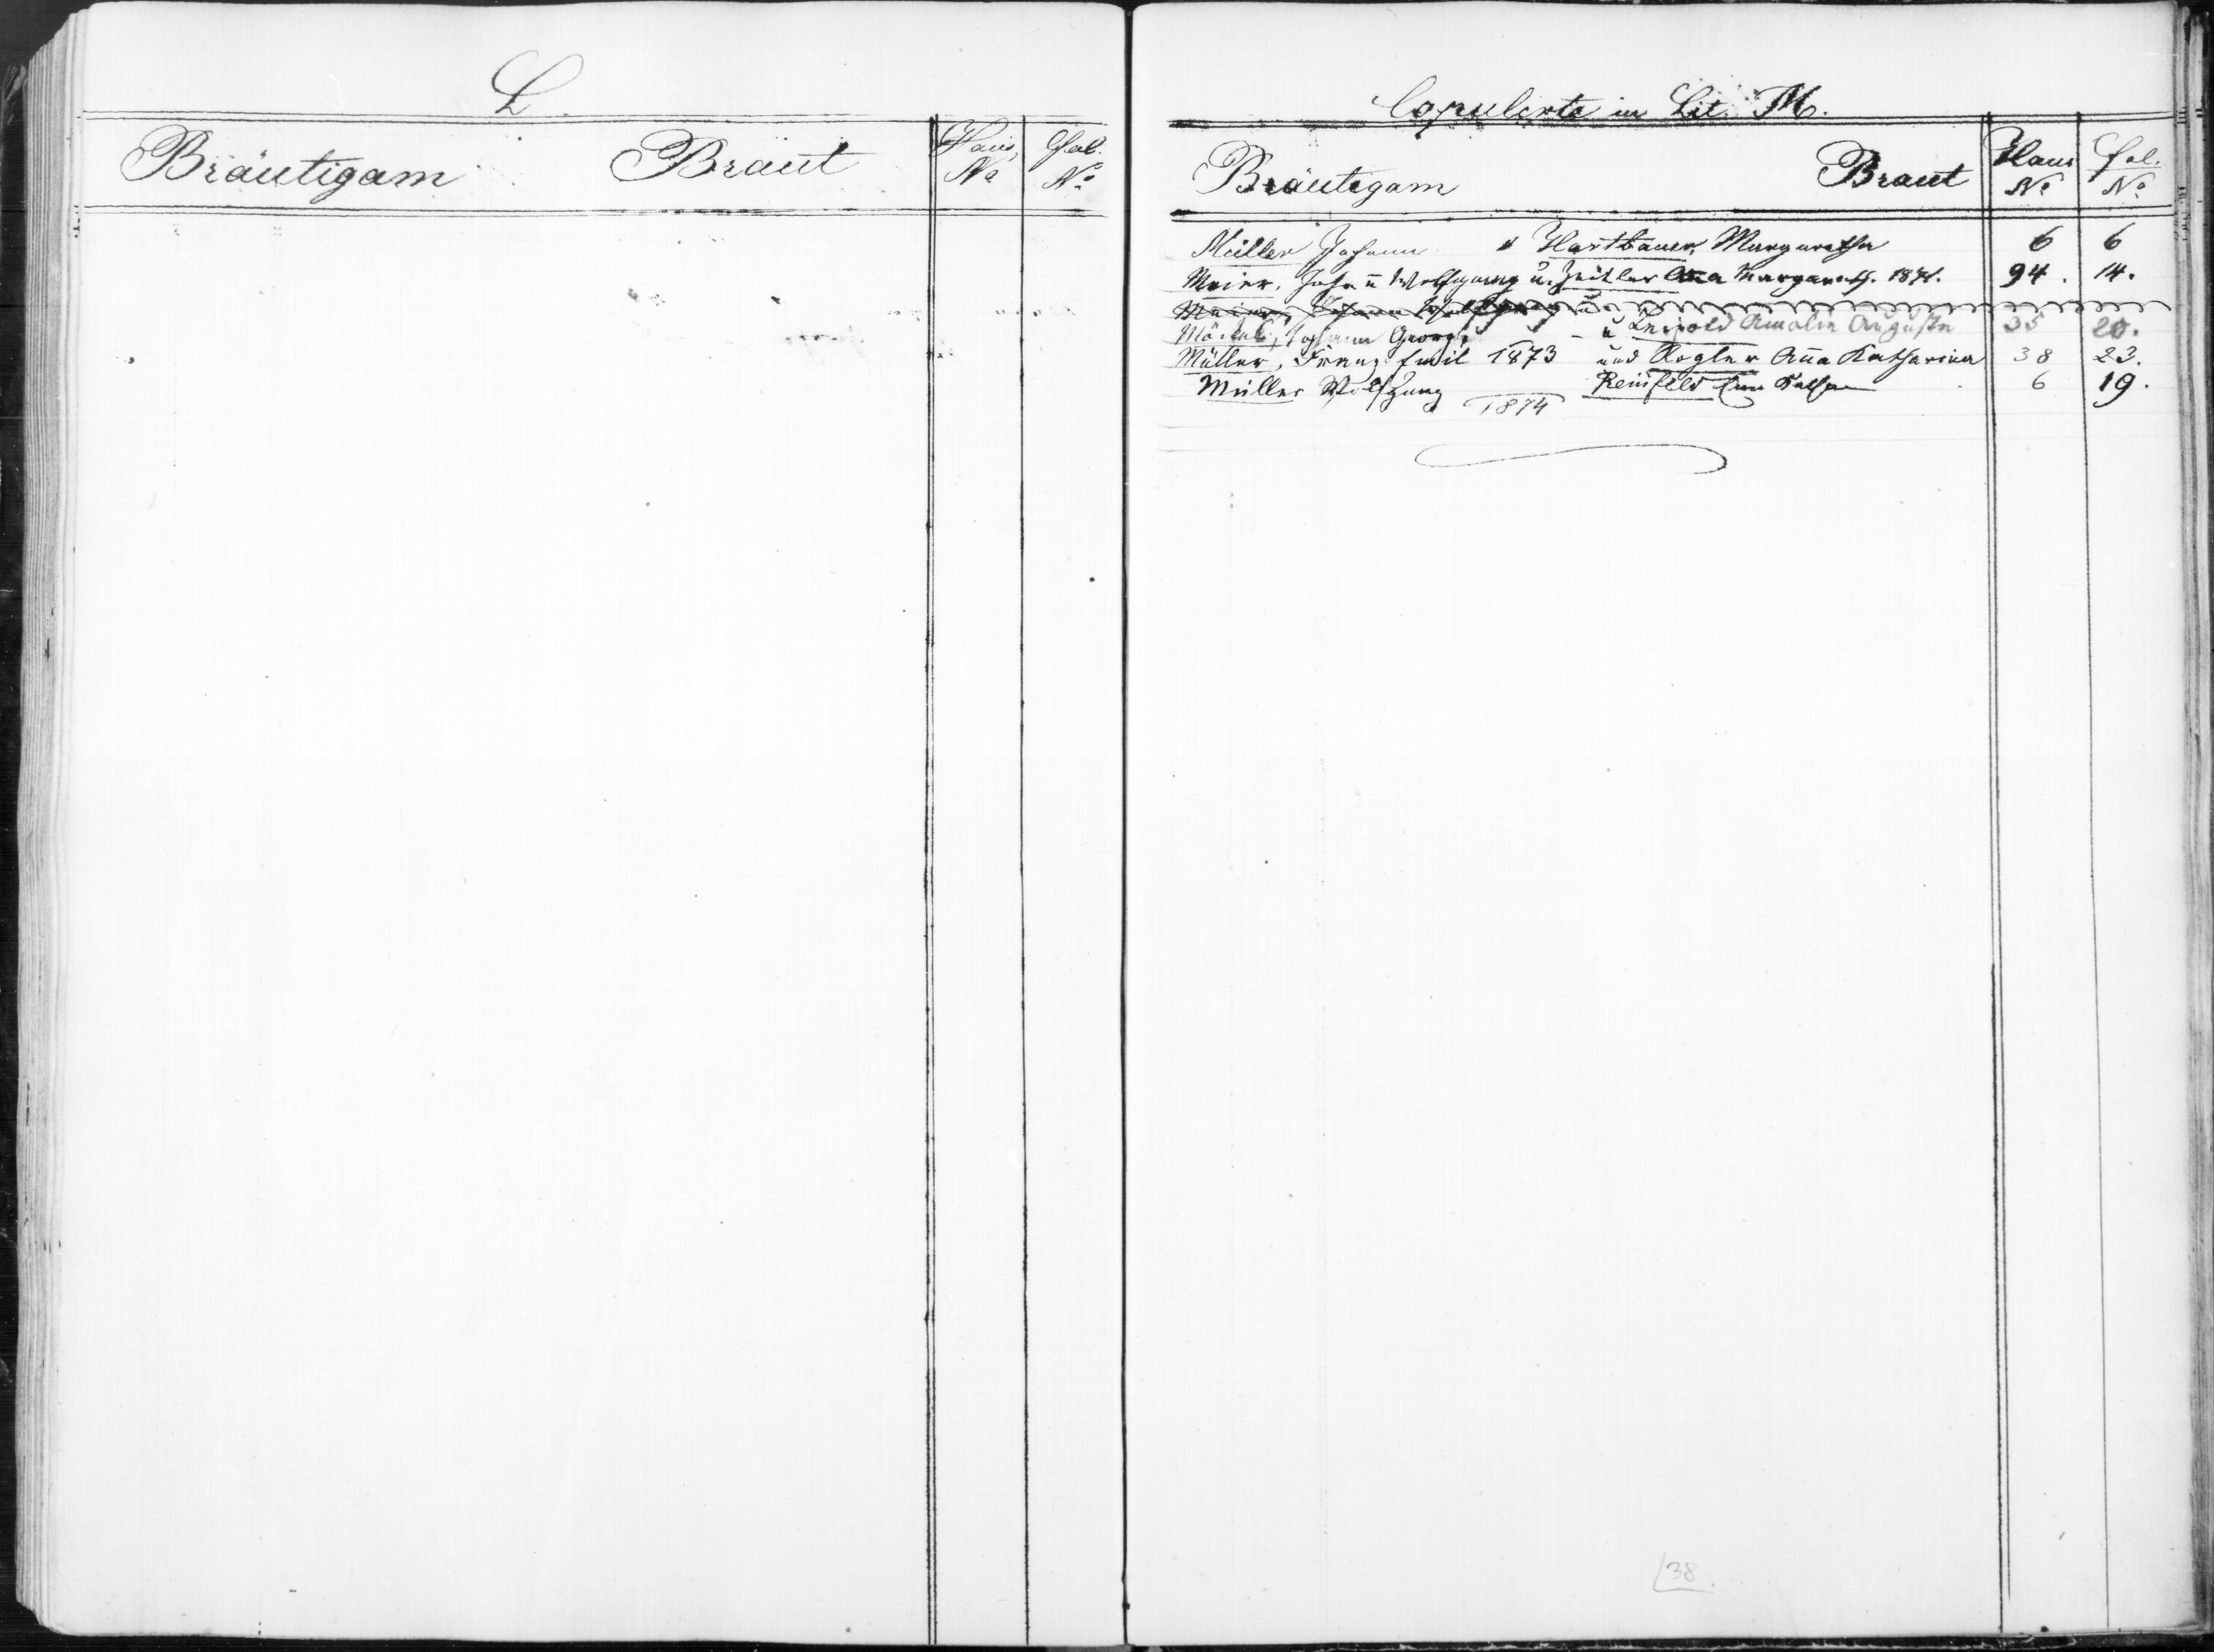 L
Bräutigam Braut Haus No Fol. No
Copulirte in Lit. M.
Bräutigam Braut Haus No Fol. No
Müller Johann u Hartbauer, Margaretha 6 6
Meier, Johañ Wolfgang u. Zeitler Aña Margareth. 1871. 94. 14.
Meier, Johann Wolfgang u.
Johann Georg, u Leupold Amalie Auguste 35 20.
Müller, Franz Emil 1873 und Rogler Aña Katharina 38 23.
Müller Wolfgang 1874 Reinfeld Kath 6 19.
38